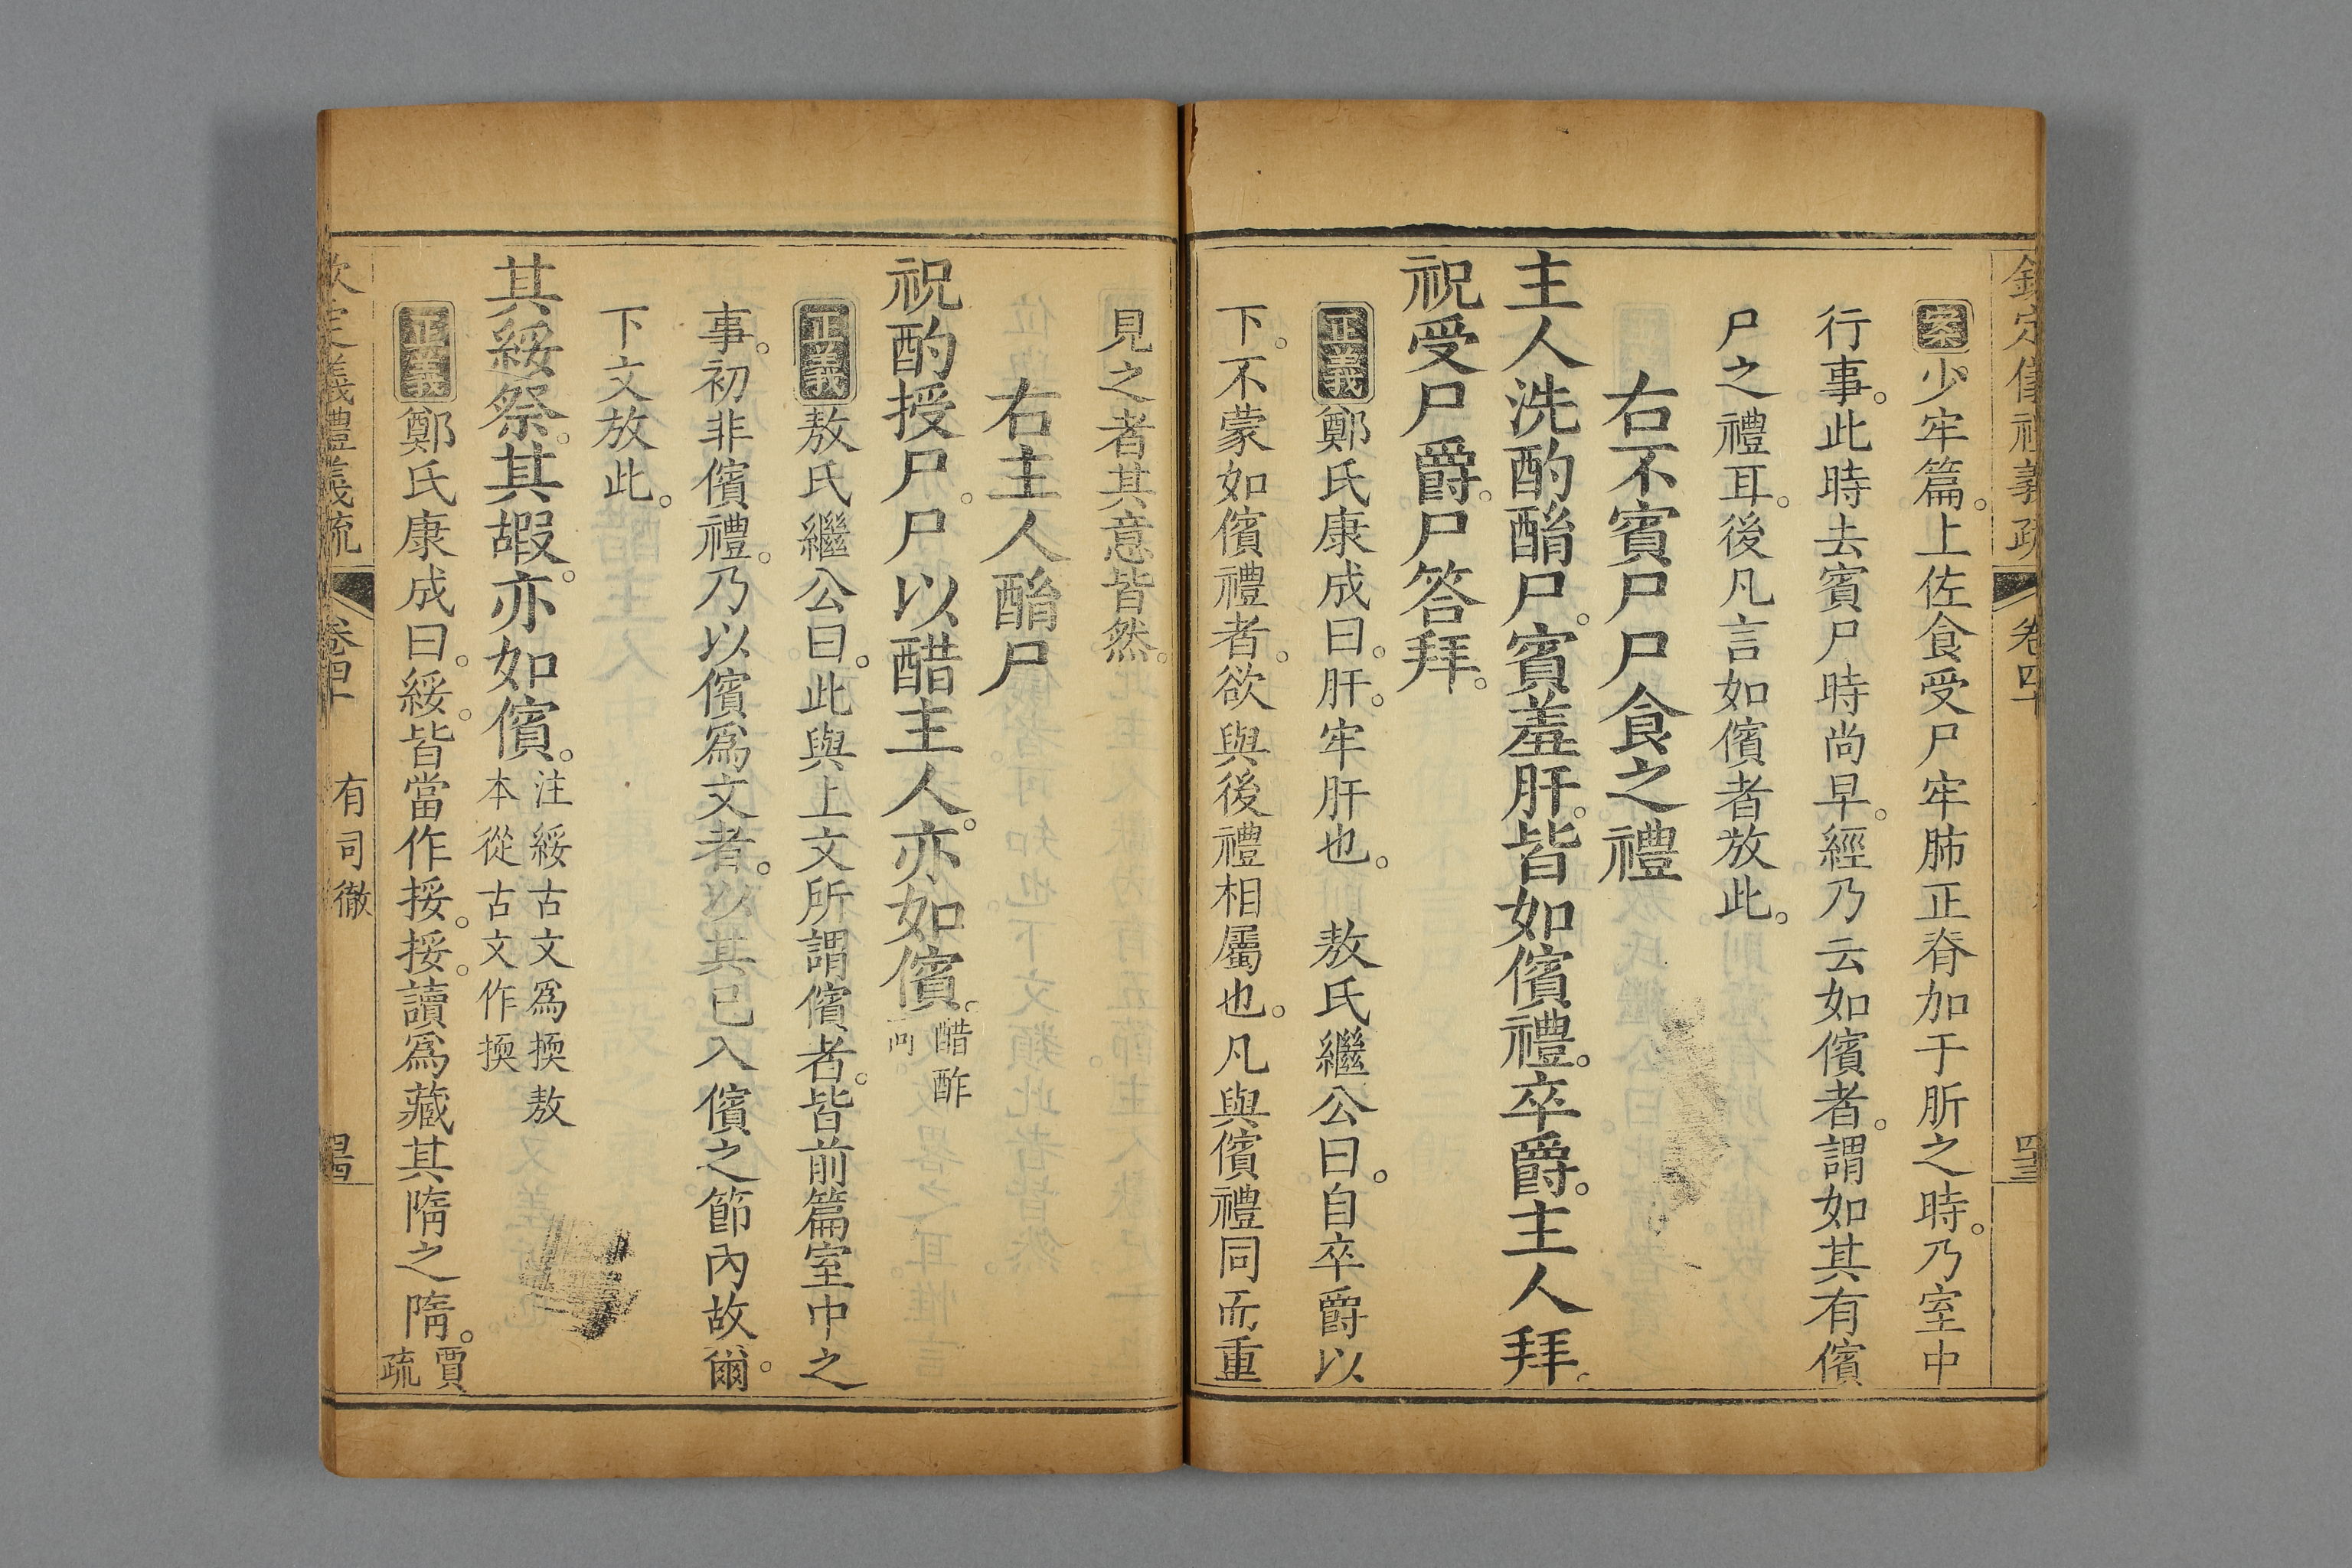 欽定儀禮義疏 卷四十 四三
案少牢篇。上佐食受尸牢肺正脊加于肵之時。乃室中
行事。此時去賓尸時尚早。經乃云如儐者。謂如其有儐
尸之禮耳。後凡言如儐者放此。
右不賓尸尸食之禮
主人洗酌酳尸。賓羞肝。皆如儐禮。卒爵。主人拜。
祝受尸爵。尸答拜。
正義鄭氏康成曰。肝。牢肝也。 敖氏繼公曰。自卒爵以
下。不蒙如儐禮者。欲與後禮相屬也。凡與儐禮同而重
見之者其意皆然。
右主人酳尸
祝酌授尸。尸以醋主人。亦如儐。
醋酢
同
正義敖氏繼公曰。此與上文所謂儐者。皆前篇室中之
事。初非儐禮。乃以儐爲文者。以其已入儐之節內故爾。
下文放此。
其綏祭。其嘏。亦如儐。
注綏古文爲㨊敖
本從古文作㨊
正義鄭氏康成曰。綏。皆當作挼。挼。讀爲藏其隋之隋。
賈
疏
欽定義禮義疏 卷四十 有司徹 四四